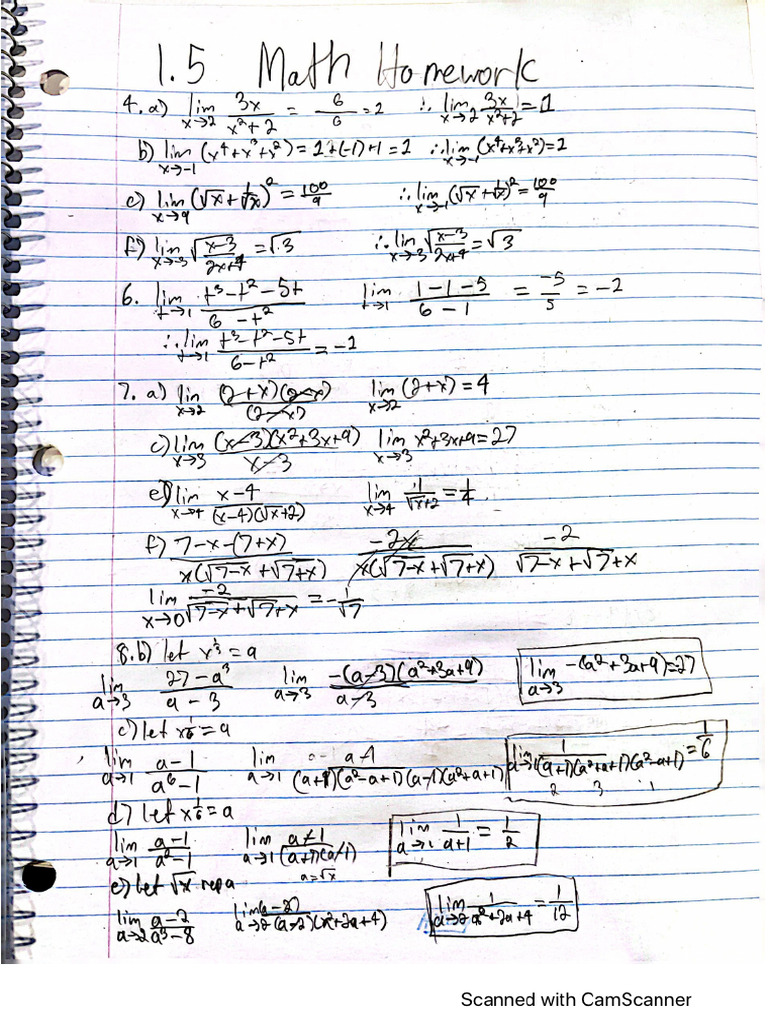 1.5 Math Homework
4. a) lim x→2 3x/(x²+2) = 6/6 = 1 ∴ lim x→2 3x/(x²+2) = 1
b) lim x→-1 (x⁴+x³+x²) = 1+(-1)+1 = 1 ∴ lim x→-1 (x⁴+x³+x²) = 1
c) lim x→9 (√x + 1/√x)² = 100/9 ∴ lim (√x + 1/√x)² = 100/9
f) lim x→-3 √((x-3)/(2x+4)) = √3 ∴ lim x→-3 √((x-3)/(2x+4)) = √3
6. lim t→1 (t³-t²-5t)/(6-t²) lim t→1 (1-1-5)/(6-1) = -5/5 = -1
∴ lim t→1 (t³-t²-5t)/(6-t²) = -1
7. a) lim x→2 (2+x)(2-x)/(2-x) lim x→2 (2+x) = 4
c) lim x→3 (x-3)(x²+3x+9)/(x-3) lim x→3 x²+3x+9 = 27
e) lim x→4 (x-4)/((x-4)(√x+2)) lim x→4 1/(√x+2) = 1/4
f) (7-x-(7+x))/(x(√7-x + √7+x)) -2x/(x(√7-x + √7+x)) -2/(√7-x + √7+x)
lim x→0 -2/(√7-x + √7+x) = -1/√7
8. b) let x^(1/3) = a
lim a→3 (27-a³)/(a-3) lim a→3 -(a-3)(a²+3a+9)/(a-3) lim a→3 -(a²+3a+9) = 27
c) let x^(1/6) = a
lim a→1 (a-1)/(a⁶-1) lim a→1 (a-1)/((a+1)(a²-a+1)(a-1)(a²+a+1)) lim a→1 1/((a+1)(a²+a+1)(a²-a+1)) = 1/6
2 3 1
d) let x^(1/6) = a
lim a→1 (a-1)/(a²-1) lim a→1 (a-1)/((a+1)(a-1)) lim a→1 1/(a+1) = 1/2
a=√x
e) let √x rep a
lim a→2 (a-2)/(a³-8) lim a→2 (a-2)/((a-2)(a²+2a+4)) lim a→2 1/(a²+2a+4) = 1/12
Scanned with CamScanner